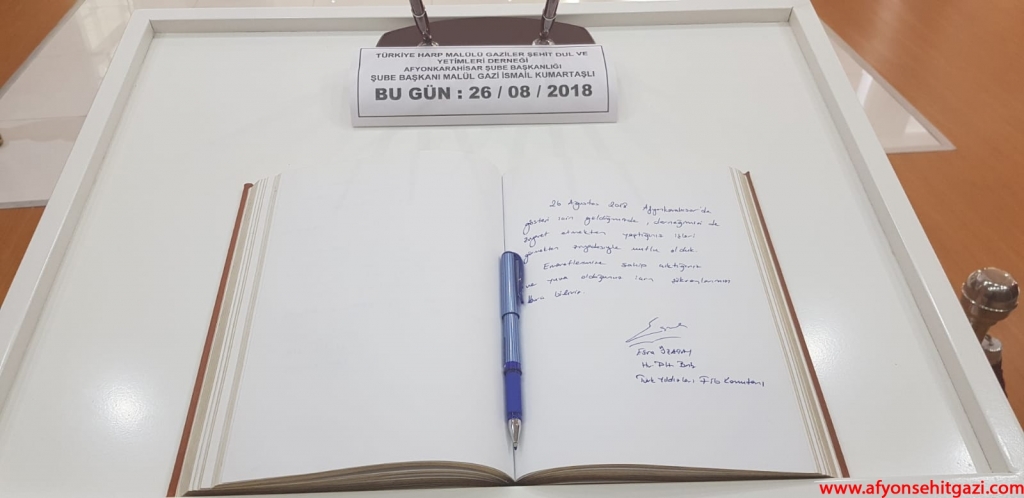 TÜRKİYE HARP MALULÜ GAZİLER ŞEHİT DUL VE
YETİMLERİ DERNEĞİ
AFYONKARAHİSAR ŞUBE BAŞKANLIĞI
ŞUBE BAŞKANI MALÜL GAZİ İSMAİL KUMARTAŞLI
BU GÜN : 26 / 08 / 2018
26 Ağustos 2018 Afyonkarahisar'da
gösteri için geldiğimizde, derneğimizi de
ziyaret etmekten yaptığınız işleri
görmekten mutlu olduk.
Emanetlerimize sahip çıktığınız
ve yuva olduğunuz için şükranlarımızı
Esra ÖZATAY
Türk Yıldızları Filo Komutanı
www.afyonsehitgazi.com